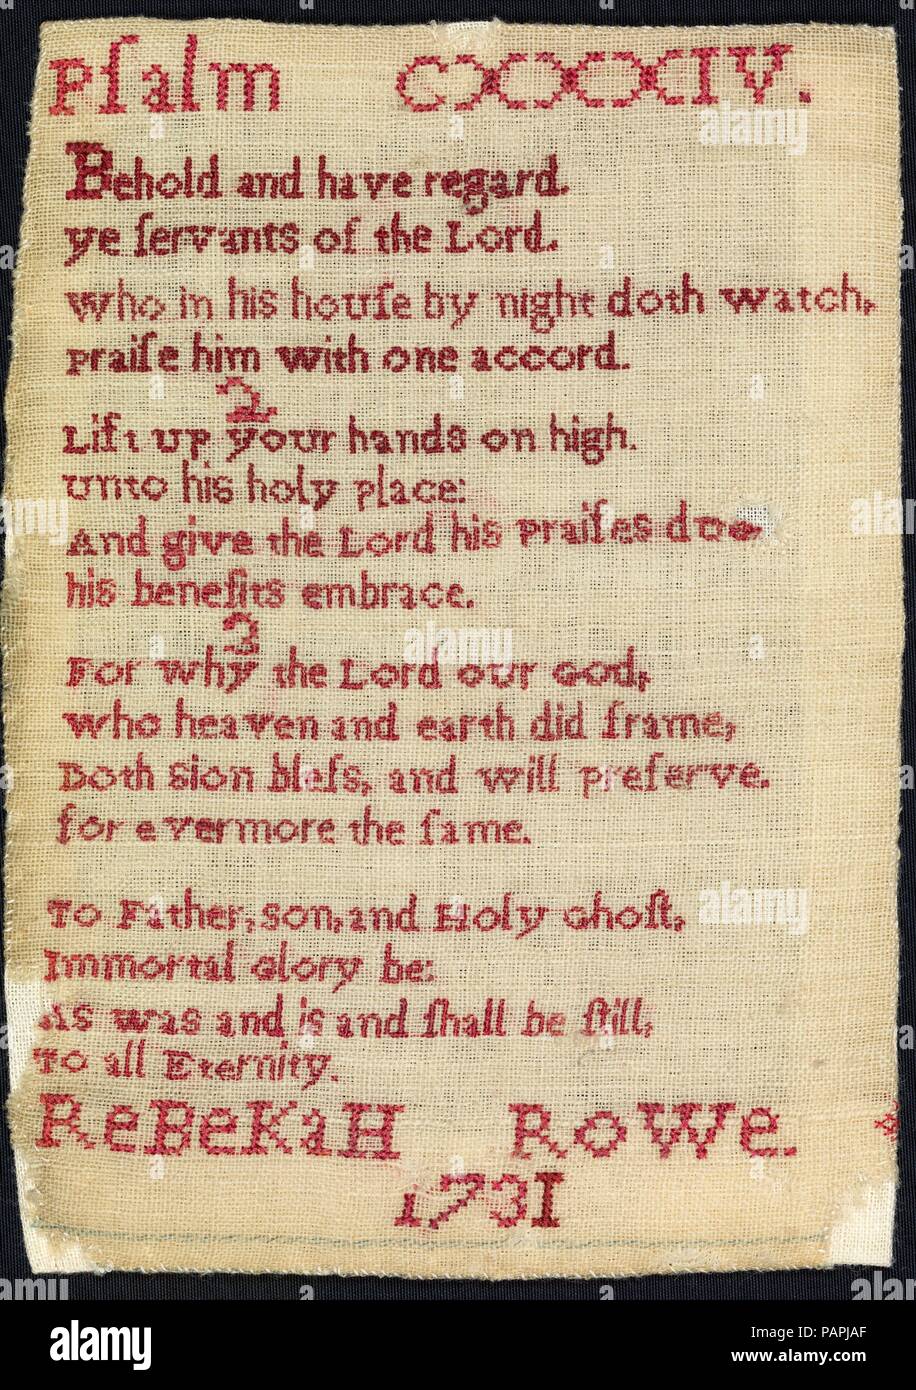 Pſalm CXXXIV.
Behold and have regard.
ye ſervants of the Lord.
Who in his houſe by night doth watch,
Praiſe him with one accord.
2
Lift up your hands on high.
Unto his holy place:
And give the Lord his Praiſes due
his benefits embrace.
3
For why the Lord our God,
who heaven and earth did frame,
Doth Sion bleſs, and will preſerve.
for evermore the ſame.
To Father, Son, and Holy Ghoſt,
Immortal Glory be:
As was and is and ſhall be ſtill,
To all Eternity.
ReBeKaH RoWe.
1731
alamy
Image ID: PAPJAF
www.alamy.com